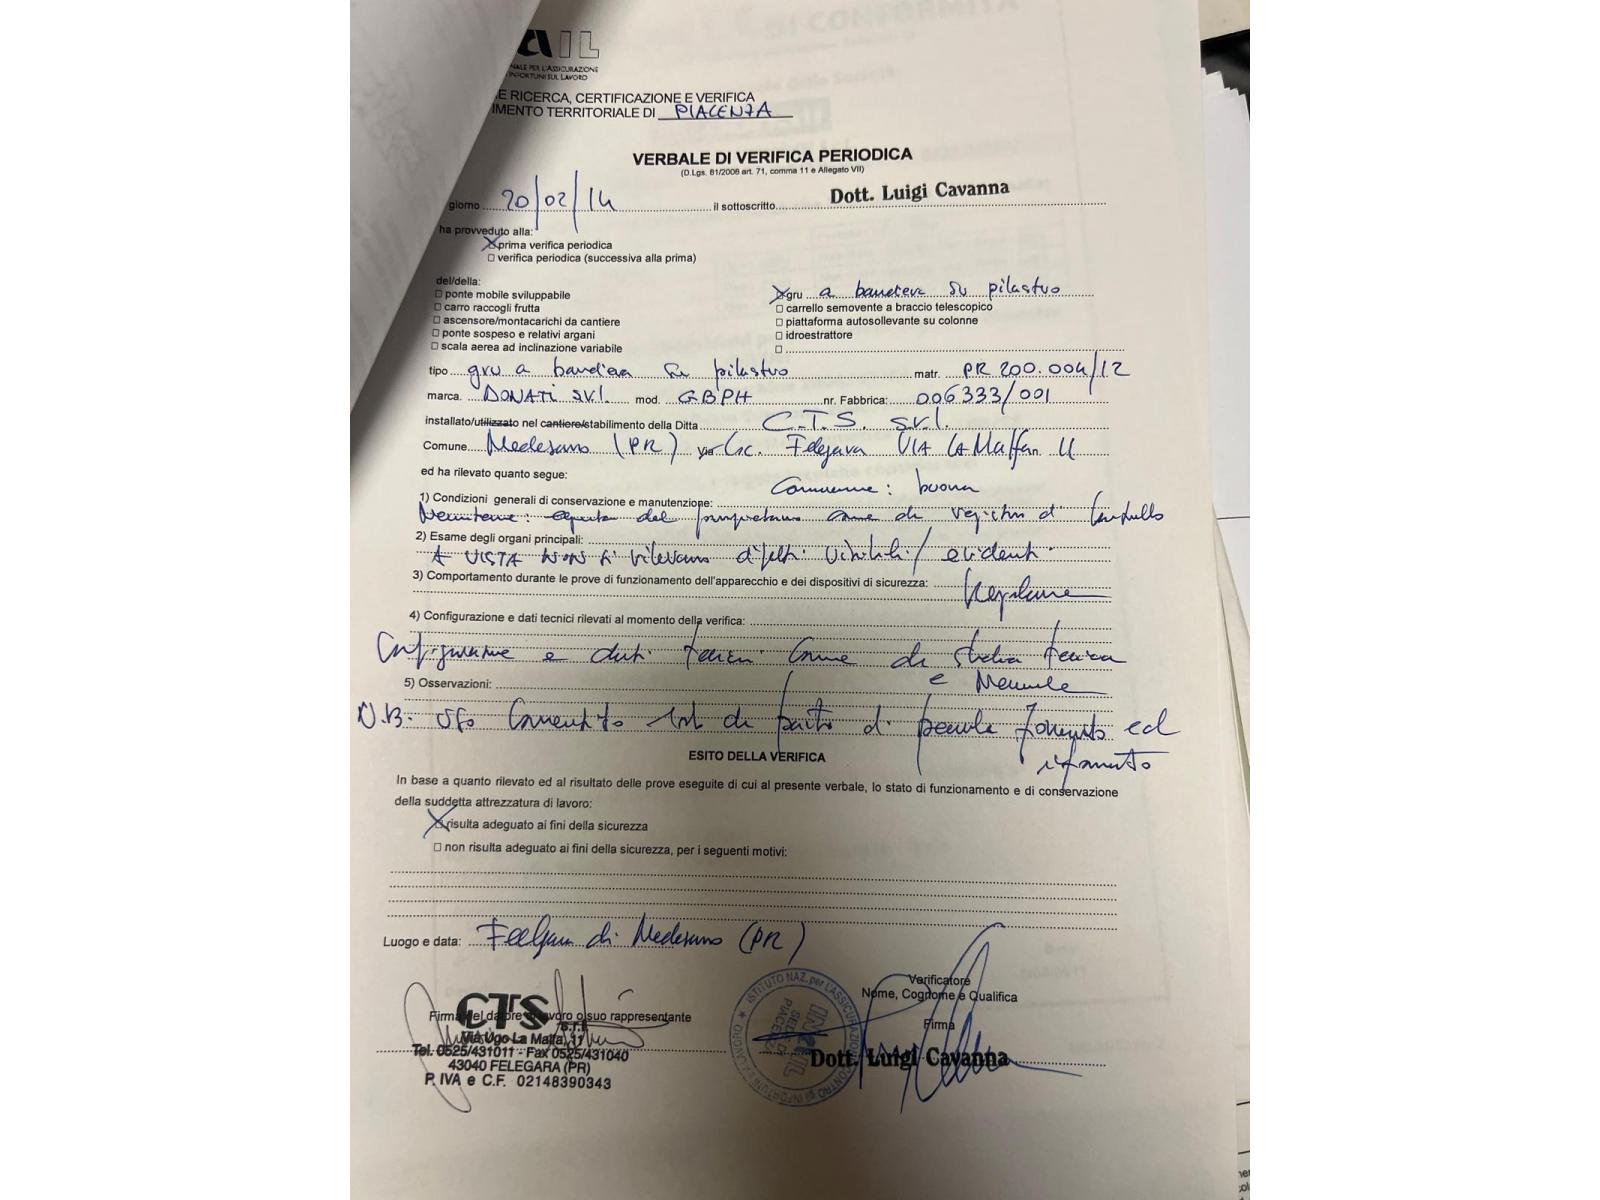 AIL
NALE PER L'ASSICURAZIONE
INFORTUNI SUL LAVORO
E RICERCA, CERTIFICAZIONE E VERIFICA
IMENTO TERRITORIALE DI PIACENZA
VERBALE DI VERIFICA PERIODICA
(D.Lgs. 81/2008 art. 71, comma 11 e Allegato VII)
giorno 20/02/14 il sottoscritto Dott. Luigi Cavanna
ha provveduto alla:
prima verifica periodica
verifica periodica (successiva alla prima)
del/della:
ponte mobile sviluppabile
carro raccogli frutta
ascensore/montacarichi da cantiere
ponte sospeso e relativi argani
scala aerea ad inclinazione variabile
gru a bandiera su pilastro
carrello semovente a braccio telescopico
piattaforma autosollevante su colonne
idroestrattore
tipo gru a bandiera su pilastro matr. PR 200.004/12
marca. DONATI srl. mod. GBPH nr. Fabbrica: 006333/001
installato/utilizzato nel cantiere/stabilimento della Ditta C.T.S. srl.
Comune Medesano (PR) via Loc. Felegara VIA LA Malfa 11
ed ha rilevato quanto segue:
1) Condizioni generali di conservazione e manutenzione: buona
del come da registro di Controllo
2) Esame degli organi principali:
A VISTA NON si rilevano difetti visibili/evidenti
3) Comportamento durante le prove di funzionamento dell'apparecchio e dei dispositivi di sicurezza: Regolare
4) Configurazione e dati tecnici rilevati al momento della verifica:
Configurazione e dati tecnici come da scheda tecnica
e Manuale
5) Osservazioni:
N.B. uso consentito da parte di personale formato ed
informato
ESITO DELLA VERIFICA
In base a quanto rilevato ed al risultato delle prove eseguite di cui al presente verbale, lo stato di funzionamento e di conservazione
della suddetta attrezzatura di lavoro:
risulta adeguato ai fini della sicurezza
non risulta adeguato ai fini della sicurezza, per i seguenti motivi:
Luogo e data: Felegara di Medesano (PR)
Verificatore
Nome, Cognome e Qualifica
Firma
Dott. Luigi Cavanna
Firma del datore di lavoro o suo rappresentante
CTS S.r.l.
Via Ugo La Malfa, 11
Tel. 0525/431011 - Fax 0525/431040
43040 FELEGARA (PR)
P. IVA e C.F. 02148390343
ISTITUTO NAZ. per l'ASSICURAZIONE CONTRO gli INFORTUNI e LAVORO
INAIL
SEDE DI
PIACENZA